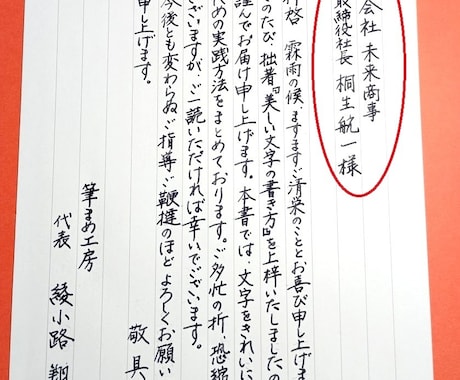 会社 未来商事
取締役社長 桐生航一様
拝啓 霖雨の候、ますますご清栄のこととお喜び申し上げま
このたび、拙著『美しい文字の書き方』を上梓いたしましたの
謹んでお届け申し上げます。本書では、文字をきれいに
ための実践方法をまとめております。ご多忙の折、恐縮
ございますが、ご一読いただければ幸いでございます。
今後とも変わらぬご指導ご鞭撻のほどよろしくお願い
申し上げます。
敬具
筆まめ工房
代表 綾小路 翔